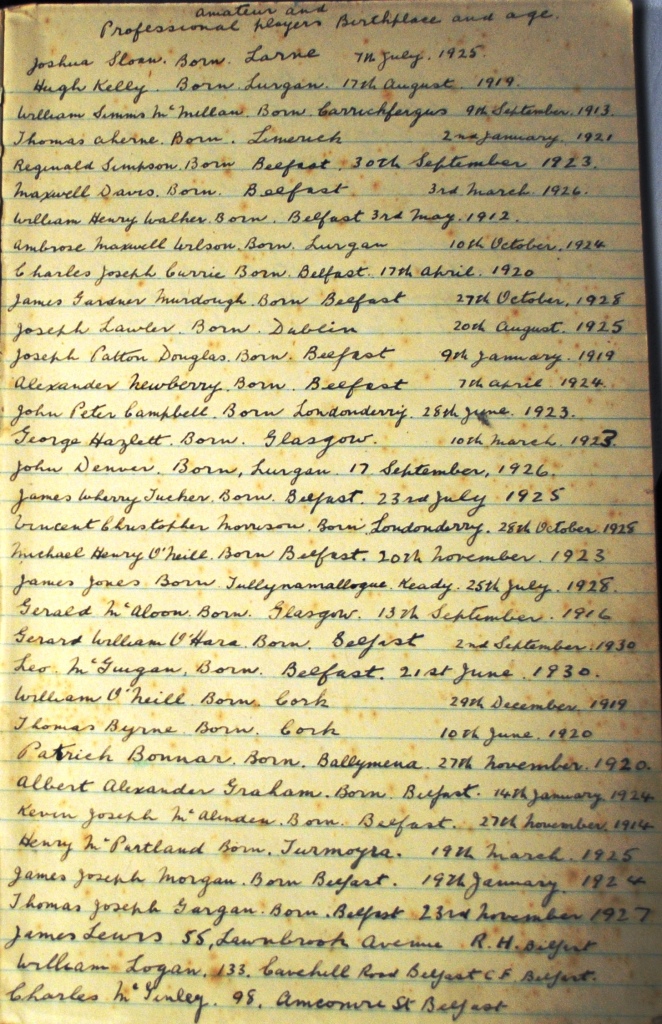 amateur and
Professional players Birthplace and age.
Joshua Sloan. Born. Larne 7th July. 1925.
Hugh Kelly. Born Lurgan. 17th August. 1919.
William Simms McMillan. Born. Carrickfergus 9th September. 1913.
Thomas Aherne. Born. Limerick 2nd January. 1921
Reginald Simpson. Born Belfast. 30th September 1923.
Maxwell Davis. Born. Belfast 3rd March. 1926.
William Henry Walker. Born. Belfast 3rd May. 1912.
Ambrose Maxwell Wilson. Born. Lurgan 10th October. 1924
Charles Joseph Currie Born. Belfast. 17th April. 1920
James Gardner Murdough. Born Belfast 27th October. 1928
Joseph Lawler. Born. Dublin 20th August. 1925
Joseph Patton Douglas. Born. Belfast 9th January. 1919
Alexander Newberry. Born. Belfast 7th April. 1924.
John Peter Campbell. Born Londonderry. 28th June. 1923.
George Hazlett. Born. Glasgow. 10th March. 1923.
John Denver. Born, Lurgan. 17 September, 1926.
James Wherry Tucker. Born. Belfast. 23rd July 1925
Vincent Christopher Morrison. Born. Londonderry. 28th October. 1928
Michael Henry O'Neill. Born Belfast. 20th November. 1923
James Jones Born Tullynamallogue. Keady. 25th July. 1928.
Gerald McAloon. Born. Glasgow. 13th September. 1916
Gerard William O'Hara. Born. Belfast 2nd September. 1930
Leo. McGuigan, Born. Belfast. 21st June. 1930.
William O'Neill. Born. Cork 29th December. 1919
Thomas Byrne. Born. Cork 10th June. 1920
Patrick Bonnar. Born. Ballymena. 27th November. 1920.
Albert Alexander Graham. Born. Belfast. 14th January. 1924
Kevin Joseph McAlinden. Born. Belfast. 27th November. 1914
Henry McPartland Born. Turmoyra. 19th March. 1925
James Joseph Morgan. Born Belfast. 19th January. 1924
Thomas Joseph Gargan. Born. Belfast 23rd November 1927
James Lewis 55, Lawnbrook Avenue R.H. Belfast
William Logan. 133. Cavehill Road Belfast C.F. Belfast.
Charles McGinley. 98. St Belfast